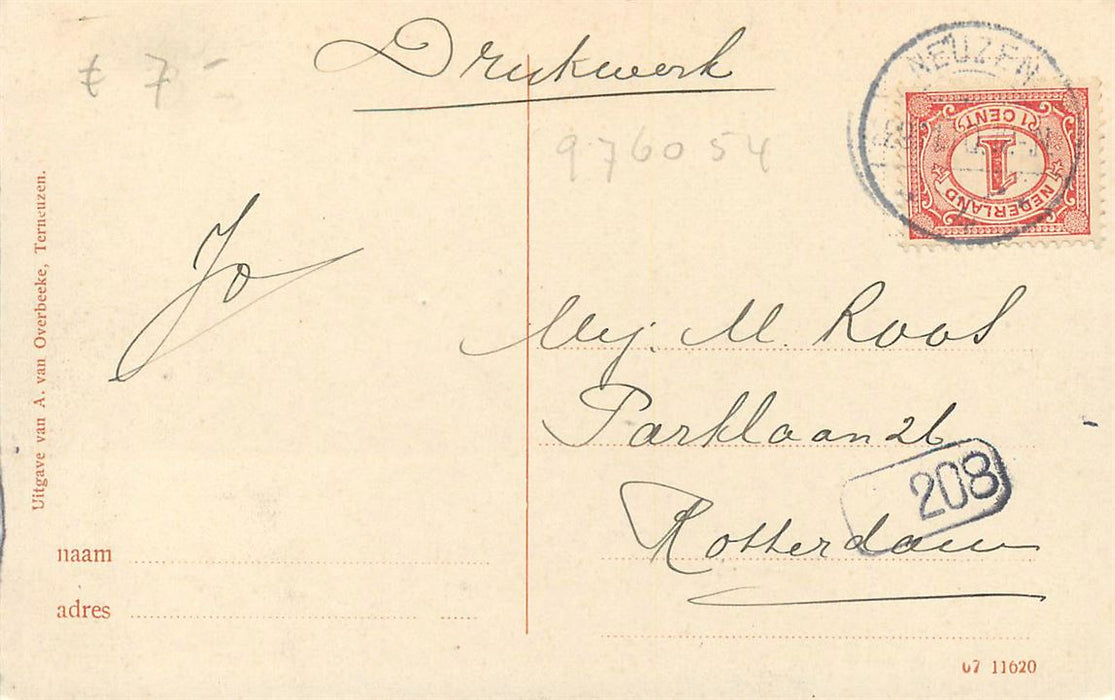 Drukwerk
€ 7-
976054
NEUZEN
1 CENT
1
NEDERLAND
Jo
Mej. M. Roos
Parklaan 26
208
Rotterdam
Uitgave van A. van Overbeeke, Terneuzen.
naam
adres
07 11620